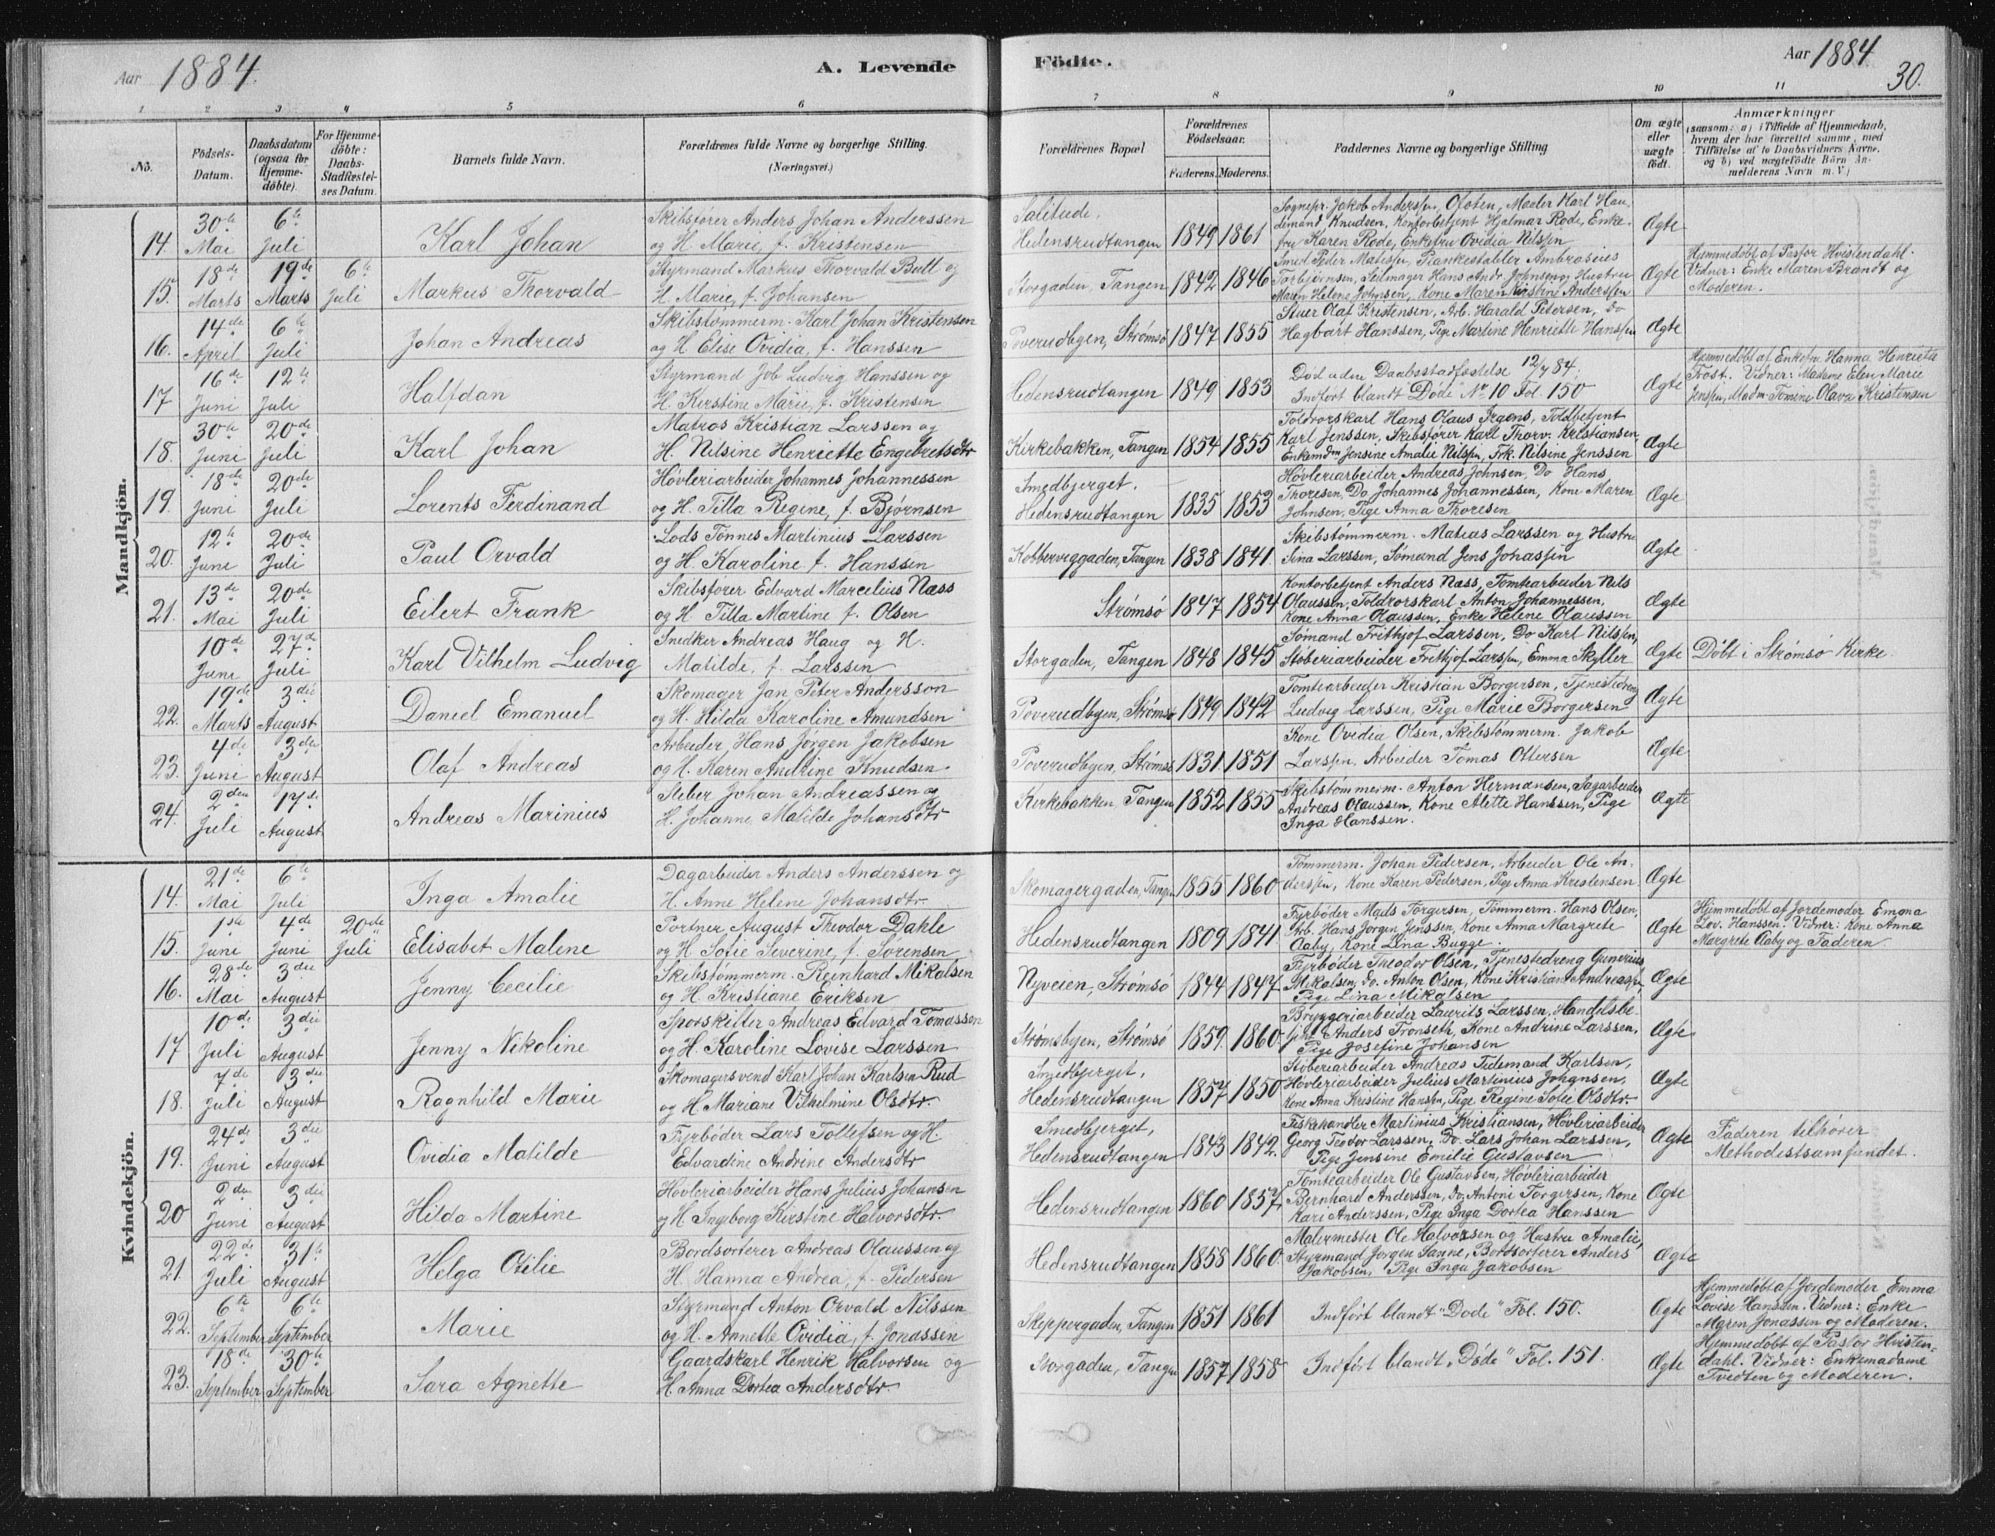 Aar 1884.
A. Levende Födte.
Aar 1884
30.
1 2 3 4 5 6 7 8 9 10 11
No.
Födsels-Datum.
Daabsdatum (ogsaa for Hjemmedöbte).
For Hjemmedöbte: Daabs-Stadfæstelses Datum.
Barnets fulde Navn.
Forældrenes fulde Navne og borgerlige Stilling.
(Næringsvei.)
Forældrenes Bopæl
Forældrenes Födselsaar.
Faderens. Moderens.
Faddernes Navne og borgerlige Stilling
Om ægte eller uægte født.
Anmærkninger
(saasom: a) i Tilfælde af Hjemmedaab, hvem der har forrettet samme, med Tilföielse af to Daabsvidners Navne, og b) ved uægtefödte Börn Anmelderens Navn m. V.)
Mandkjön.
14. 30te Mai 6te Juli Karl Johan
Skibsfører Anders Johan Anderssen
og H. Marie, f. Kristensen
Solitude, Hedensrudtangen 1849 1861
Sognepr. Jakob Anderssen, Ofoten, Mægler Karl Haudemand Knudsen, Kontorbetjent Hjalmar Rode, Enkefru Karen Rode, Enkefru Ovidia Nilssen
Ægte
15. 18de Marts 19de Marts 6te Juli Markus Thorvald
Styrmand Markus Thorvald Bull og
H. Marie, f. Johansen
Storgaden, Tangen 1842 1846
Smed Peder Matissen, Plankestabler Ambrosius Torbjørnsen, Seilmager Hans Andr. Johnsen og Hustru Maren Helene Johnsen, Kone Maren Kirstine Anderssen
Ægte
Hjemmedøbt af Pastor Hvistendahl. Vidner: Enke Maren Brandt og Moderen.
16. 14de April 6te Juli Johan Andreas
Skibstømmerm. Karl Johan Kristensen
og H. Elise Ovidia, f. Hanssen
Poverudbyen, Strømsø 1847 1855
Stuer Olaf Kristensen, Arb. Harald Petersen, Do Hagbart Hanssen, Pige Martine Henriette Hanssen
Ægte
17. 16de Juni 12te Juli Halfdan
Styrmand Job Ludvig Hanssen og
H. Kirstine Marie, f. Kristensen
Hedensrudtangen 1849 1853
Død uden Daabsstadfæstelse 12/7 84.
Indført blandt "Døde" No 10 Fol. 150
Ægte
Hjemmedøbt af Enkefru Hanna Henriette Frost. Vidner: Madame Elen Marie Jenssen, Madm Tomine Olava Kristensen
18. 30te Juni 20de Juli Karl Johan
Matros Kristian Larssen og
H. Nilsine Henriette Engebretsdtr
Kirkebakken, Tangen 1854 1855
Toldrorskarl Hans Olaus Irgens, Toldbetjent Karl Jenssen, Skibsfører Karl Thorv. Kristiansen, Enkemdm Jensine Amalie Nilssen, Frk. Nilsine Jenssen
Ægte
19. 18de Juni 20de Juli Lorents Ferdinand
Høvleriarbeider Johannes Johannessen
og H. Tilla Regine, f. Bjørnsen
Smedbjerget. Hedensrudtangen 1835 1853
Høvleriarbeider Andreas Johnsen, Do Hans Thoresen, Do Johannes Johannessen, Kone Maren Johnsen, Pige Anna Thoresen
Ægte
20. 12te Juni 20de Juli Paul Orvald
Lods Tønnes Martinius Larssen
og H. Karoline f. Hanssen
Kobberviggaden, Tangen 1838 1841
Skibstømmerm. Matias Larssen og Hustru Sina Larssen, Sømand Jens Johassen
Ægte
21. 13de Mai 20de Juli Eilert Frank
Skibsfører Edvard Marcelius Næss
og H. Tilla Martine f. Olsen
Strømsø 1847 1854
Kontorbetjent Anders Næss, Tomtearbeider Nils Olaussen, Toldrorskarl Anton Johannessen, Kone Anna Olaussen, Enke Helene Olaussen
Ægte
10de Juni 27de Juli Karl Vilhelm Ludvig
Snedker Andreas Haug og H.
Matilde, f. Larssen
Storgaden, Tangen 1848 1845
Sømand Frithjof Larssen, Do Karl Nilssen, Støberiarbeider Frithjof Larssen, Emma Skyller
Ægte
Døbt i Strømsø Kirke.
22. 19de Marts 3die August Daniel Emanuel
Skomager Jan Peter Andersson
og H. Hilda Karoline Amundsen
Poverudbyen, Strømsø 1849 1842
Tomtearbeider Kristian Borgersen, Tjenestedreng Ludvig Larssen, Pige Marie Borgersen
Ægte
23. 4de Juni 3die August Olaf Andreas
Arbeider Hans Jørgen Jakobsen
og H. Karen Andrine Knudsen.
Poverudbyen, Strømsø 1831 1851
Kone Ovidia Olsen, Skibstømmerm. Jakob Larssen, Arbeider Tomas Ottersen
Ægte
24. 2den Juli 17de August Andreas Marinius
Støber Johan Andreassen og
H. Johanne Matilde Johansdtr
Kirkebakken, Tangen 1852 1855
Skibstømmerm. Anton Hermansen, Sagarbeider Andreas Olaussen, Kone Alette Hanssen, Pige Inga Hanssen.
Ægte
Kvindekjön.
14. 21de Mai 6te Juli Inga Amalie
Dagarbeider Anders Anderssen og
H. Anne Helene Johansdtr.
Skomagergaden, Tangen 1855 1860
Tømmerm. Johan Pedersen, Arbeider Ole Anderssen, Kone Karen Pedersen, Pige Anna Kristensen
Ægte
15. 1ste Juni 4de Juni 20de Juli Elisabet Malene
Portner August Theodor Dahle
og H. Sofie Severine, f. Sørensen
Hedensrudtangen 1809 1841
Fyrbøder Mads Torgersen, Tømmerm. Hans Olsen, Arb. Hans Jørgen Jenssen, Kone Anna Margrete Aaby, Kone Lina Bugge.
Ægte
Hjemmedøbt af Jordemoder Emma Lov. Hanssen. Vidner: Kone Anna Margrete Aaby og Faderen
16. 28de Mai 3die August Jenny Cecilie
Skibstømmerm. Reinhard Mikalsen
og H. Kristiane Eriksen
Nyveien, Strømsø 1844 1847
Fyrbøder Theodor Olsen, Tjenestedreng Gunerius Mikalsen, Do. Anton Olsen, Kone Kristiane Andreassen, Pige Lina Mikalsen
Ægte
17 10de Juli 3die August Jenny Nikoline
Sporskifter Andreas Edvard Tomassen
og H. Karoline Lovise Larssen
Strømsbyen, Strømsø 1859. 1860.
Bryggeriarbeider Laurits Larssen, Handelsbetjent Anders Tronseth, Kone Andrine Larssen, Pige Josefine Johansen
Ægte
18. 7de Juli 3die August Ragnhild Marie
Skomagersvend Karl Johan Karlsen Rud
og H. Mariane Vilhelmine Olsdtr.
Smedbjerget, Hedensrudtangen 1857 1850
Støberiarbeider Andreas Tidemand Karlsen, Høvleriarbeider Julius Martinius Johansen, Kone Anna Kristine Hanssen, Pige Regine Sofie Olsdtr
Ægte
19. 24de Juni 3die August Ovidia Matilde
Fyrbøder Lars Tollefsen og H.
Edvardine Andrine Andersdtr
Smedbjerget, Hedensrudtangen 1843 1842.
Fiskehandler Martinius Kristiansen, Høvleriarbeider Georg Teodor Larssen, Do. Lars Johan Larssen, Pige Jensine Emilie Gustavsen
Ægte
Faderen tilhører Methodistsamfundet.
20 2den Juni 3die August Hilda Martine
Høvleriarbeider Hans Julius Johansen
og H. Ingeborg Kirstine Halvorsdtr.
Hedensrudtangen 1860 1857
Tomtearbeider Ole Gustavsen, Høvleriarbeider Bernhard Anderssen, Do. Antoni Torgersen, Kone Kari Anderssen, Pige Inga Dortea Hanssen
Ægte
21. 22de Juli 31te August Helga Otilie
Bordsorterer Andreas Olaussen og
H. Hanna Andrea, f. Pedersen
Hedensrudtangen 1858 1860.
Malermester Ole Halvorsen og Hustru Amalie, Styrmand Jørgen Sanne, Bordsorterer Anders Jakobsen, Pige Inga Jakobsen
Ægte
22. 6te September 6te September Marie
Styrmand Anton Orvald Nilssen
og H. Annette Ovidia, f. Jonassen
Skippergaden, Tangen 1851 1861
Indført blandt "Døde" Fol. 150.
Ægte
Hjemmedøbt af Jordemoder Emma Lovise Hanssen. Vidner: Enke Maren Jonassen og Moderen.
23. 18de September 30te September Sara Agnette
Gaardskarl Henrik Halvorsen og
H. Anna Dortea Andersdtr.
Storgaden, Tangen 1857 1858
Indført blandt "Døde" Fol. 151.
Ægte
Hjemmedøbt af Pastor Hvistendahl. Vidner: Enkemadame Tvedten og Moderen.